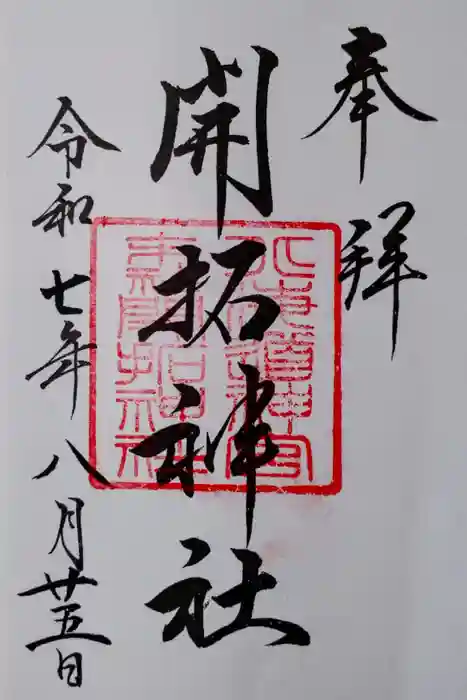 奉拝
開拓神社
令和七年八月廿五日
北海道神宮
末社開拓神社